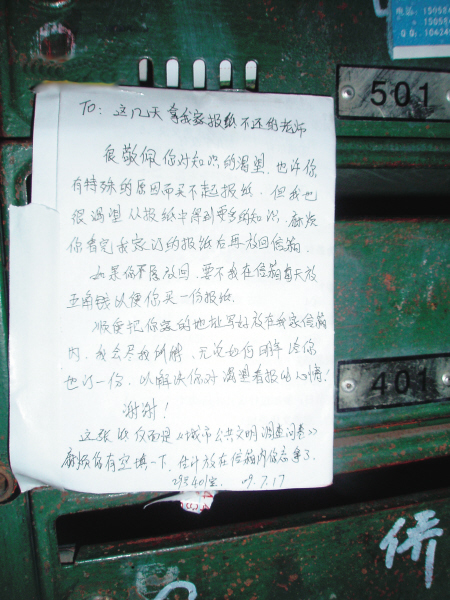 电话: 15058
QQ: 10424
501
To: 这几天拿我家报纸不还的老师
很敬佩你对知识的渴望，也许你
有特殊的原因而买不起报纸. 但我也
很渴望从报纸中得到更多的知识. 麻烦
你看完我家订的报纸后再放回信箱.
如果你不愿放回, 要不我在信箱每天放
五角钱以便你买一份报纸.
顺便把你家的地址写好放在我家信箱
内, 我会尽我所能, 无论如何明年给你
也订一份. 以解决你对渴望看报的心情!
谢谢!
这张纸反面是《城市公共文明调查问卷》
麻烦你有空填一下, 估计放在信箱内你忘拿了.
29号401室. 09.7.17
401
侨